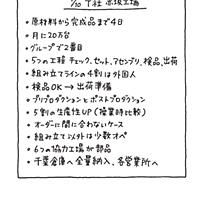 7/10 T社 赤坂工場
・原材料から完成品まで4日
・月に20万台
・グループで2番目
・5つの工程 チェック、セット、アセンブリ、検品、出荷
・組み立てラインの4割は外国人
・検品OK → 出荷準備
・プリプロダクションとポストプロダクション
・5割の生産性UP（操業時比較）
・オーダーに間に合わないケース
・組み立て以外は少数オペ
・6つの協力工場が部品
・千葉倉庫へ全量納入、各営業所へ